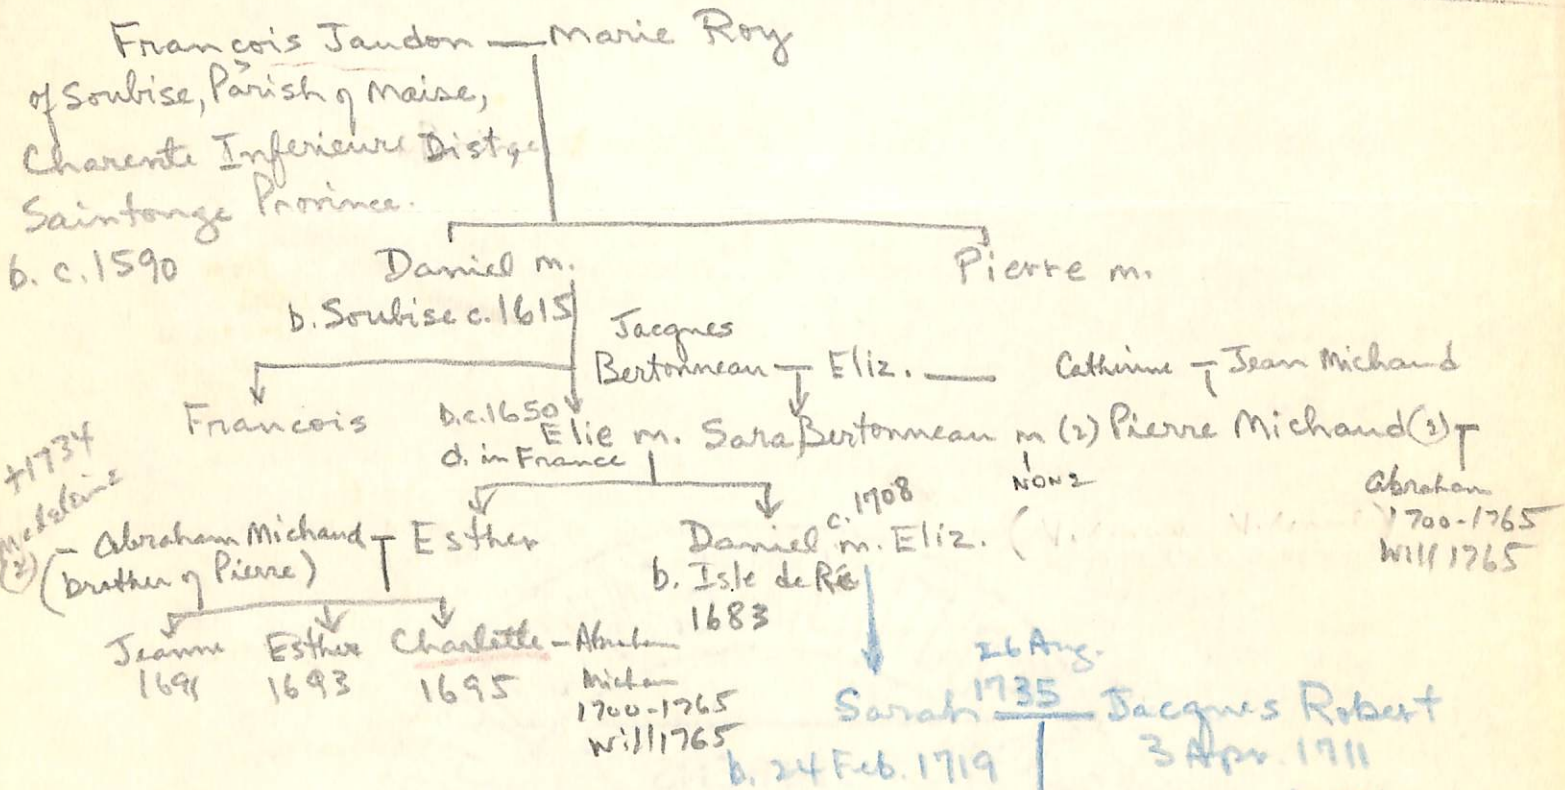 François Jaudon — Marie Roy
of Soubise, Parish of Maise,
Charente Inferieure Dist,
Saintonge Province.
b. c. 1590
Daniel m.
Pierre m.
b. Soubise c. 1615
Jacques
Bertonneau — Eliz. —
Catherine — Jean Michaud
Francois
b.c. 1650
Elie m. Sara Bertonneau m (2) Pierre Michaud (3)
d. in France
NONE
Abraham
1700-1765
Will 1765
+1734
Madelaine
(2)
— Abraham Michaud — Esther
(brother of Pierre)
c. 1708
Daniel m. Eliz. (
b. Isle de Ré
1683
Jeanne
1691
Esther
1693
Charlotte — Abraham
1695
Michau
1700-1765
Will 1765
26 Aug.
Sarah 1735 — Jacques Robert
b. 24 Feb. 1719
3 Apr. 1711